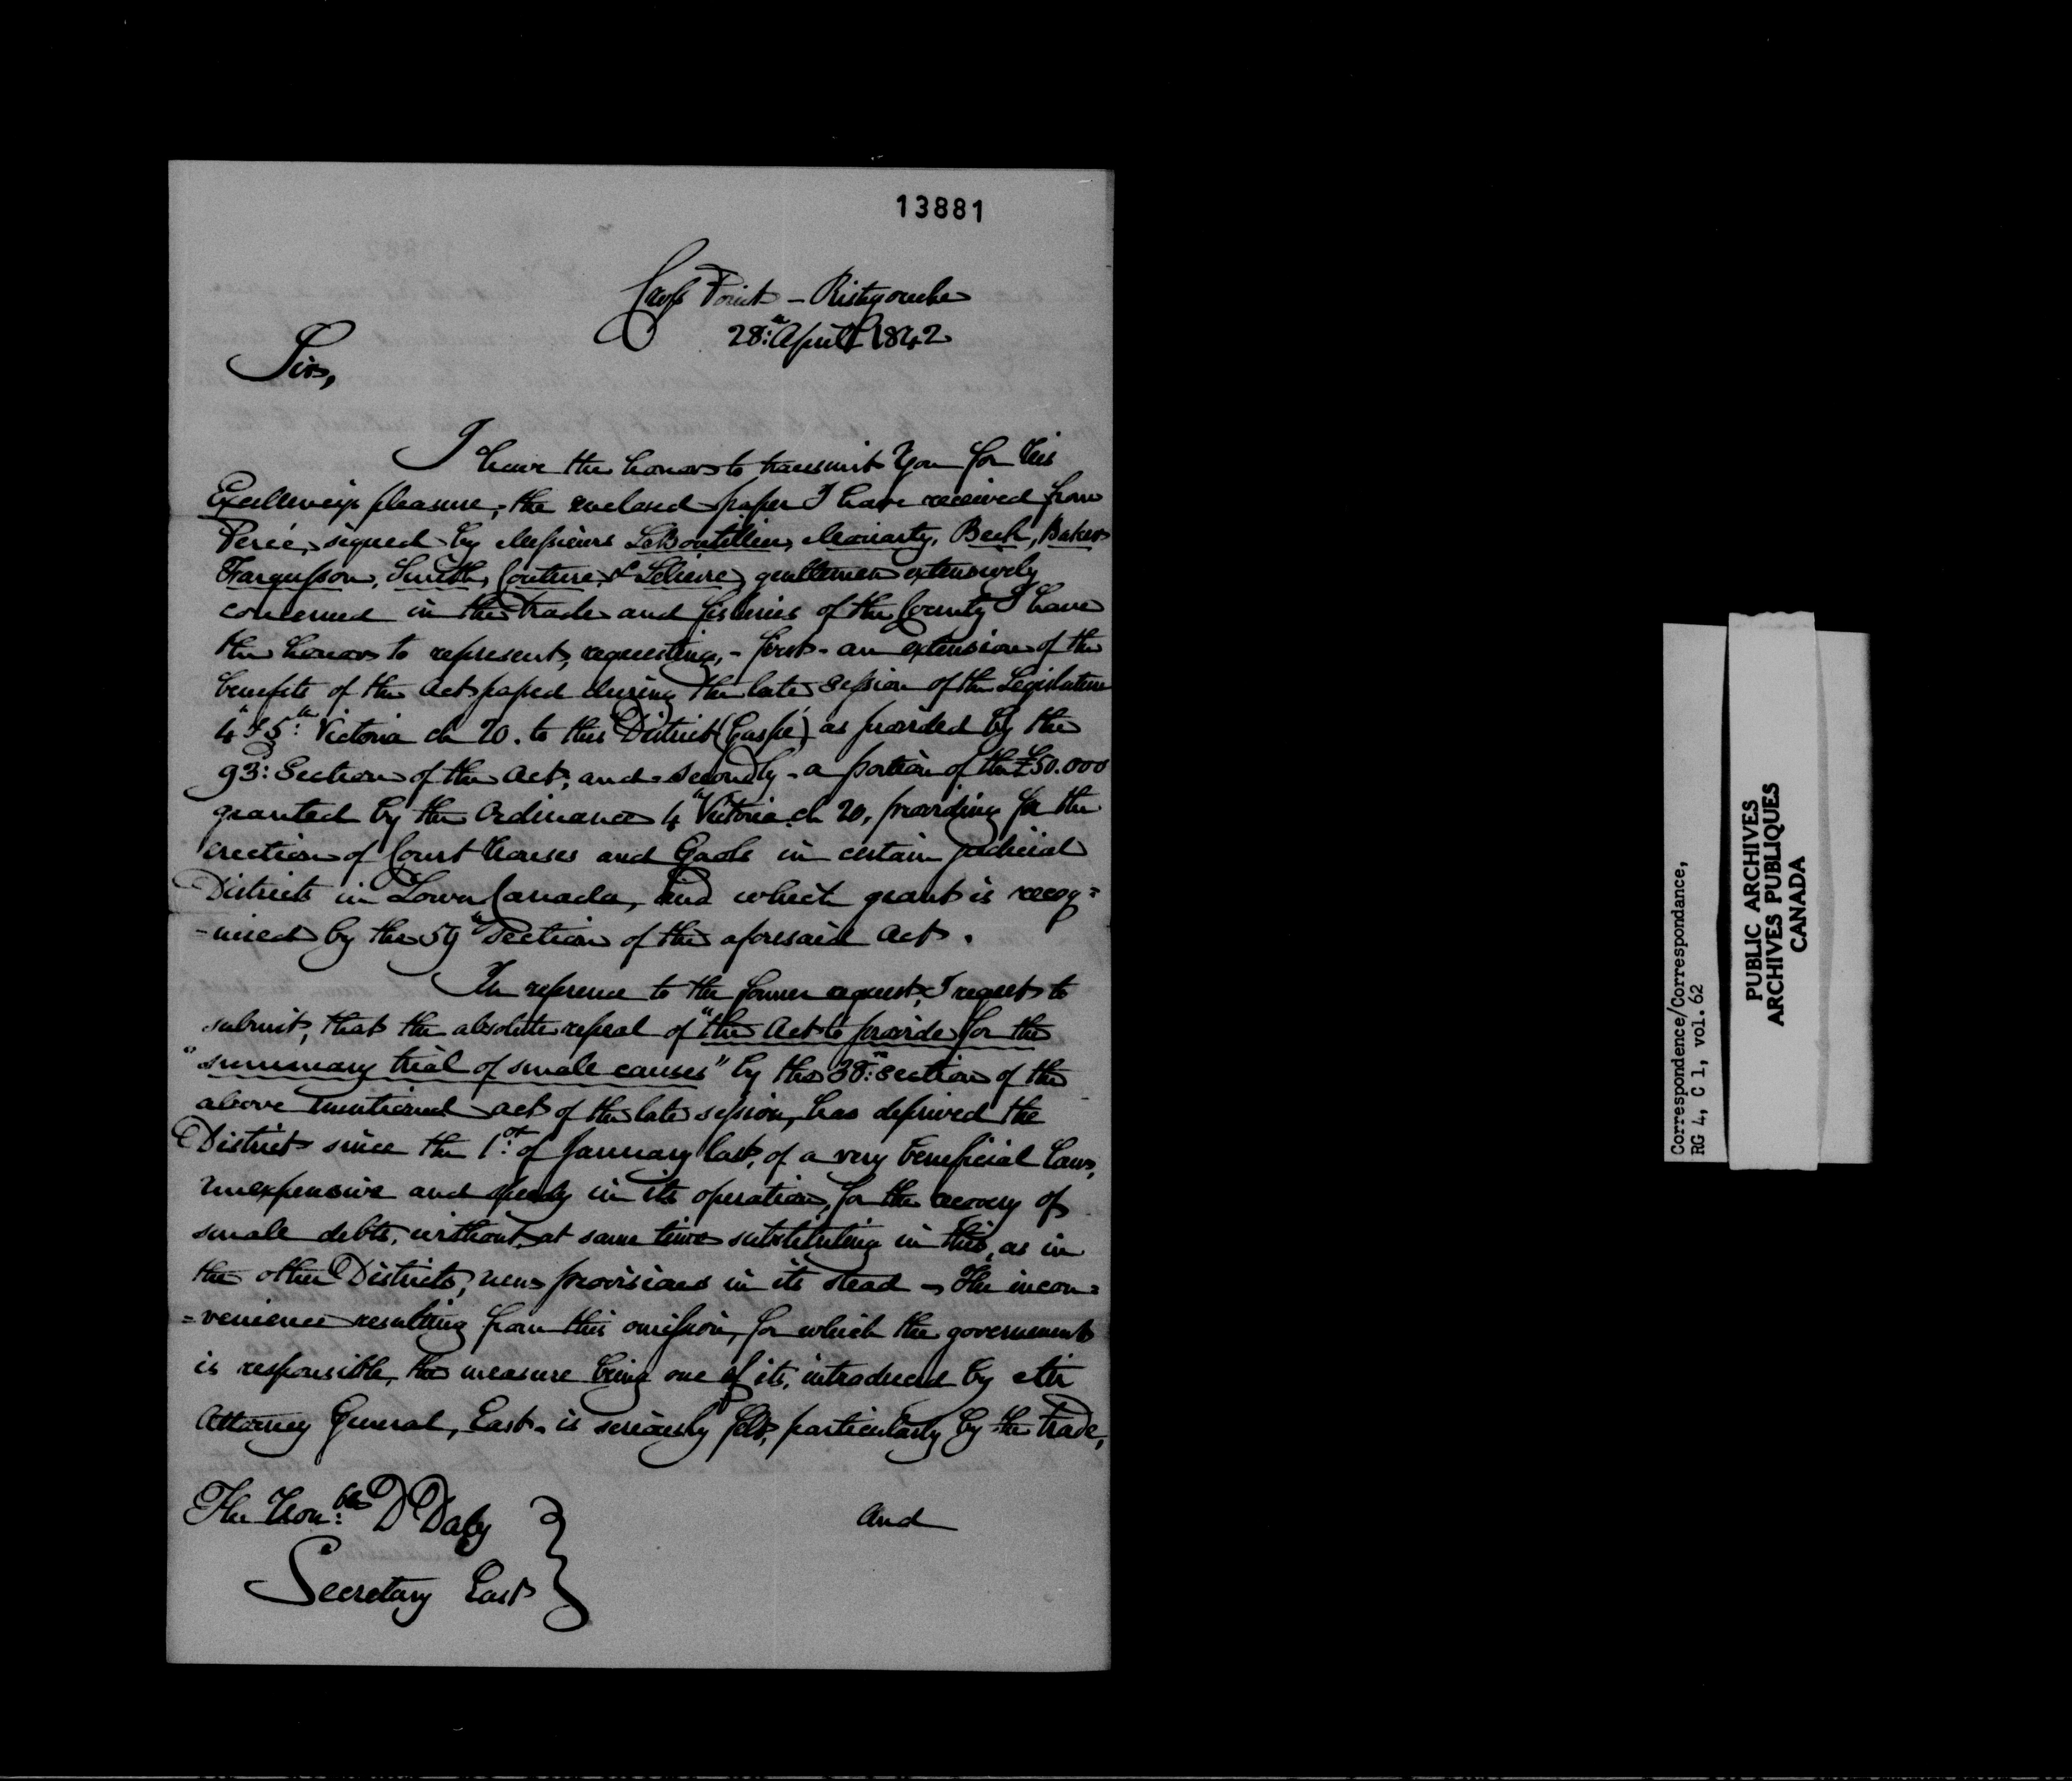 13881
Cross Point - Ristigouche
28th April 1842
Sir,
I have the honor to transmit You for His
Excellency's pleasure, the enclosed paper I have received from
Percé, signed by Messieurs LeBoutillier, Moriarty, Beck, Baker
Fargusson, Smith, Couture, & Lelievre, gentlemen extensively
concerned in the trade and fisheries of the County I have
the honor to represent, requesting, - first - an extension of the
benefits of the Act passed during the late Session of the Legislature
4th & 5th Victoria ch 20. to this District (Gaspé) as provided by the
93: Section of the Act, and - secondly - a portion of the £50.000
granted by the Ordinance 4th Victoria ch 20, providing for the
erection of Court houses and Gaols in certain judicial
Districts in Lower Canada, and which grant is recog=
=nised by the 59th Section of the aforesaid Act.
In reference to the former request, I request to
submit, that the absolute repeal of "the Act to provide for the
"summary trial of small causes" by the 38th section of the
above mentioned act of the late session, has deprived the
District since the 1st of January last, of a very beneficial law,
unexpensive and speedy in its operation, for the recovery of
small debts, without, at same time substituting in this, as in
the other Districts, new provisions in its stead - The incon=
=venience resulting from this omission, for which the government
is responsible, the measure being one of its, introduced by Mr
Attorney General, East - is seriously felt, particularly by the trade,
The Honble D Daly
Secretary East
and
Correspondence/Correspondance,
RG 4, C 1, vol. 62
PUBLIC ARCHIVES
ARCHIVES PUBLIQUES
CANADA